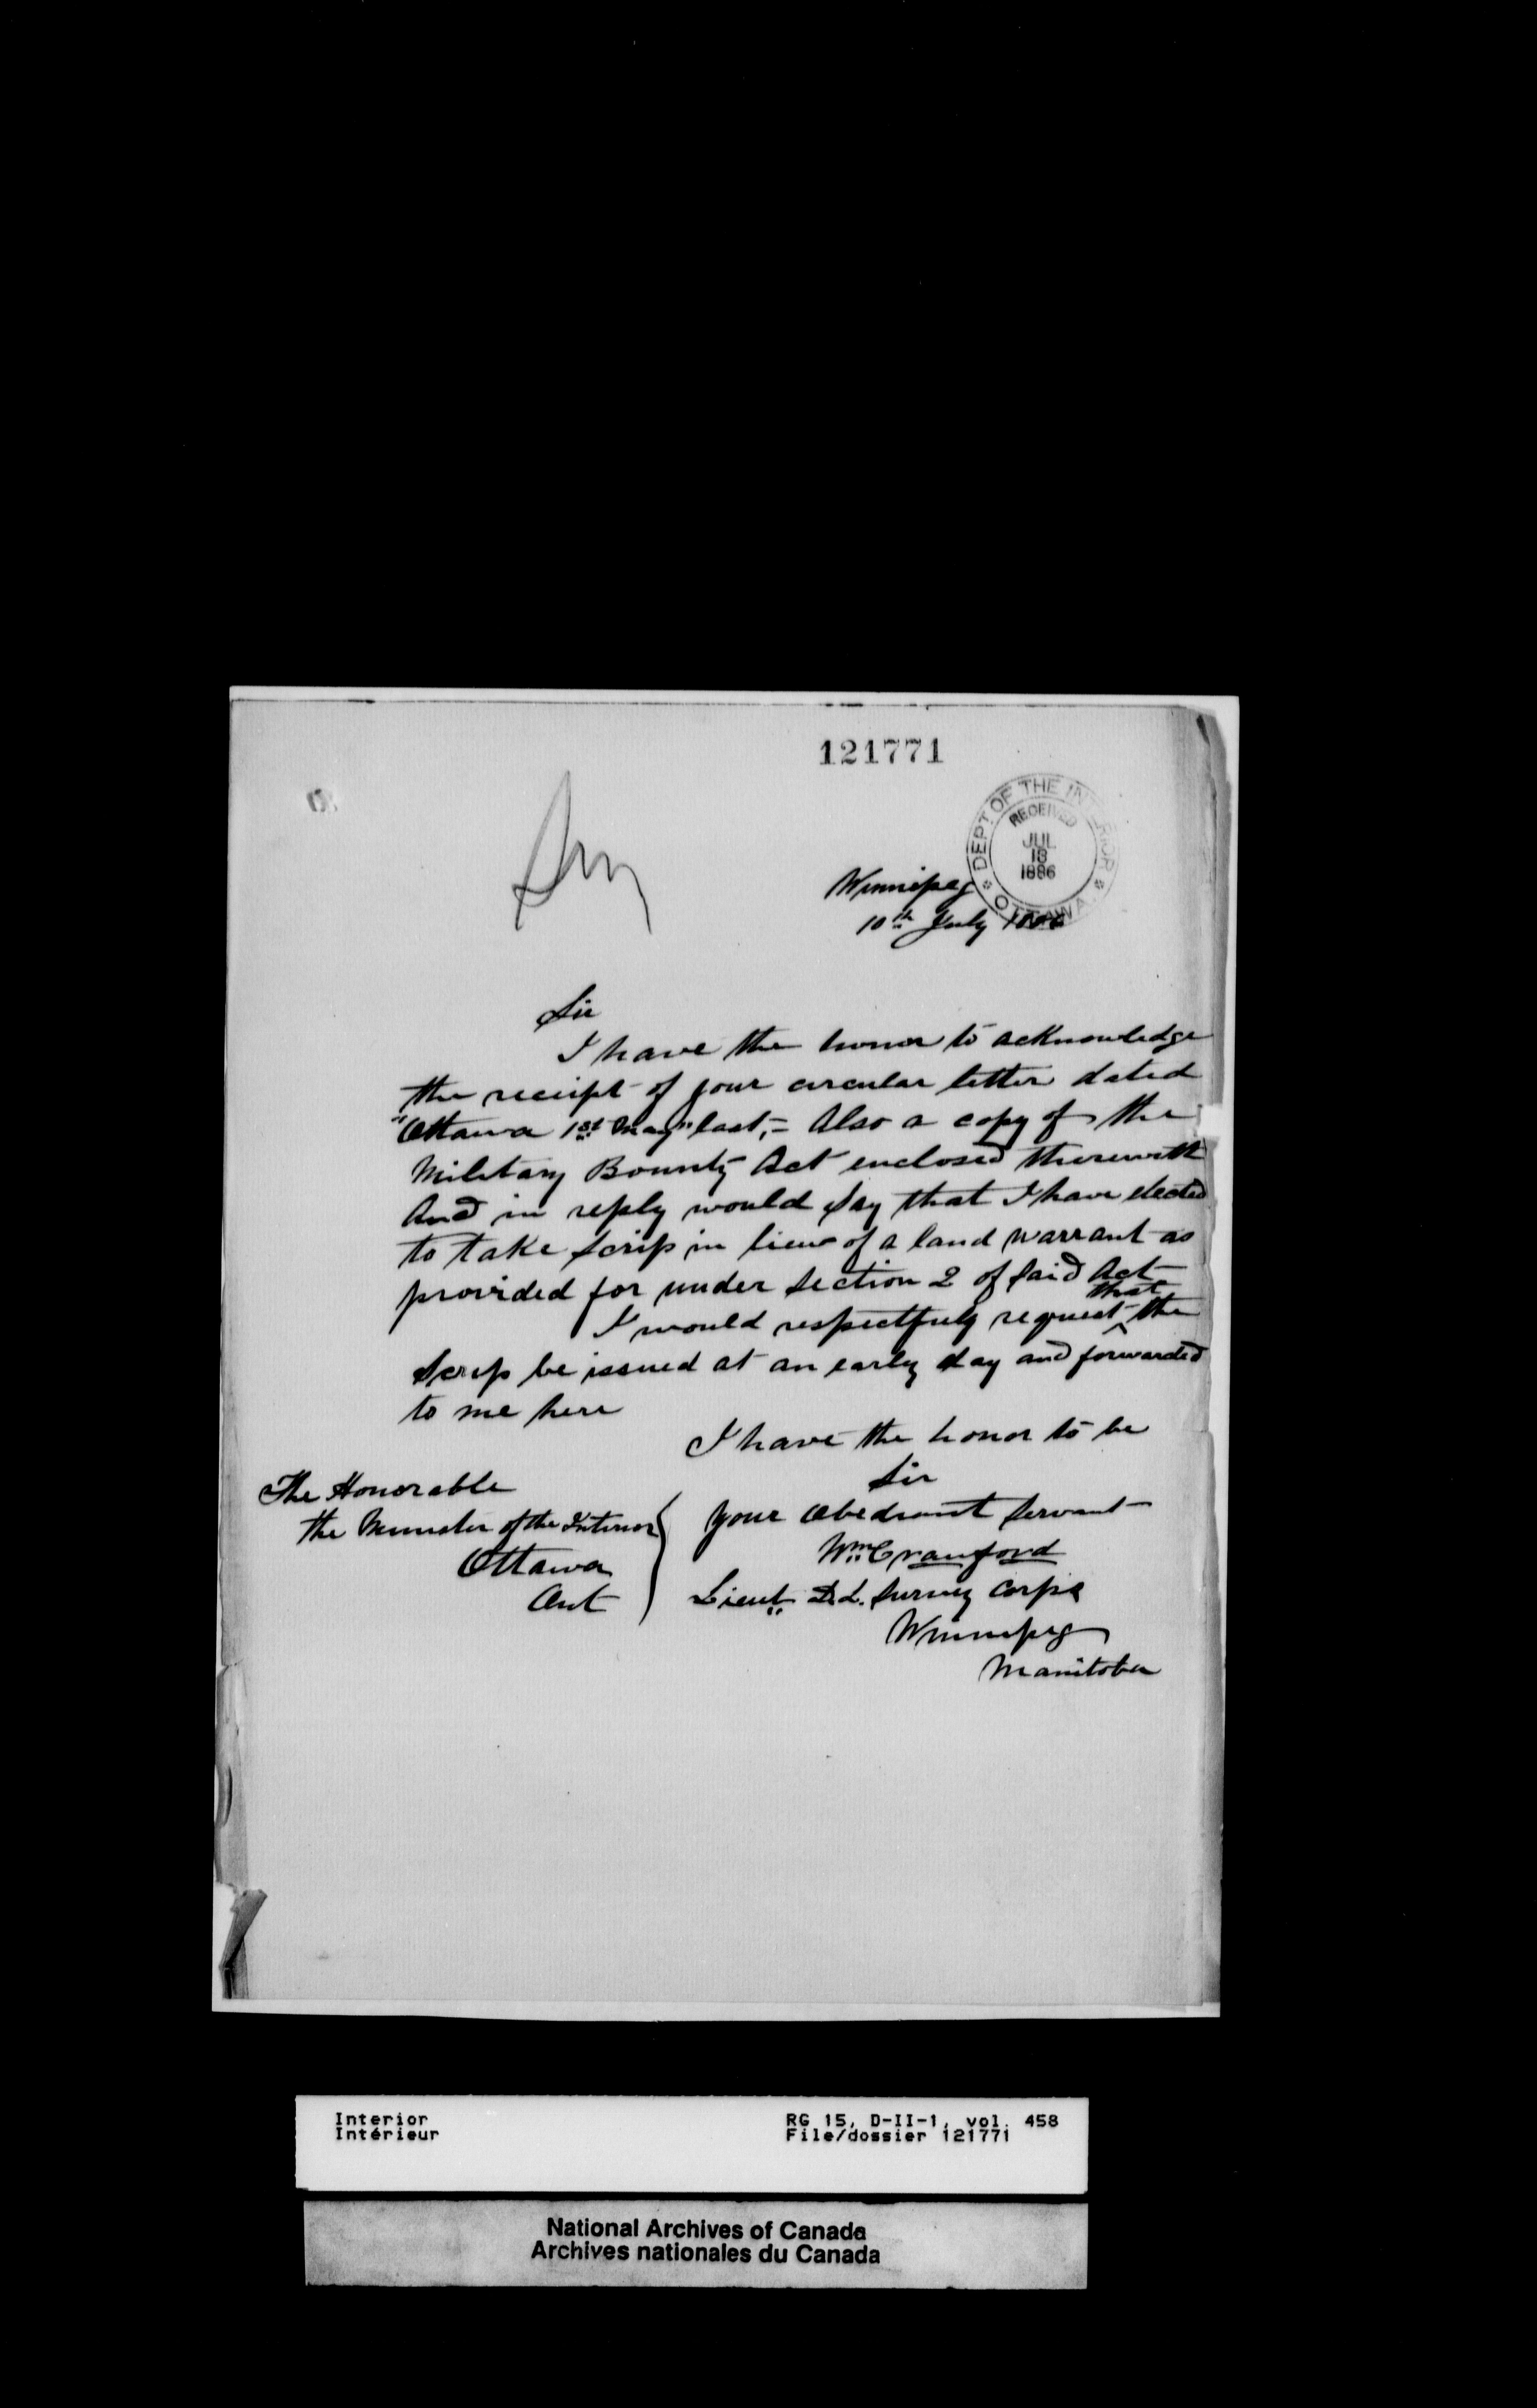 121771
DEPT. OF THE INTERIOR
RECEIVED
JUL
13
1886
OTTAWA
Winnipeg
10th July 1886
Sir
I have the honor to acknowledge
the receipt of your circular letter dated
"Ottawa 1st May" last, = Also a copy of the
Military Bounty Act enclosed therewith
And in reply would say that I have elected
to take Scrip in lieu of a land warrant as
provided for under Section 2 of said Act
I would respectfuly request that the
Scrip be issued at an early day and forwarded
to me here
I have the honor to be
Sir
Your Obediant Servant
Wm Crawford
Lieut D.L. Survey Corps
Winnipeg
Manitoba
The Honorable
the Minister of the Interior
Ottawa
Ont
Interior
Intérieur
RG 15, D-II-1, vol. 458
File/dossier 121771
National Archives of Canada
Archives nationales du Canada